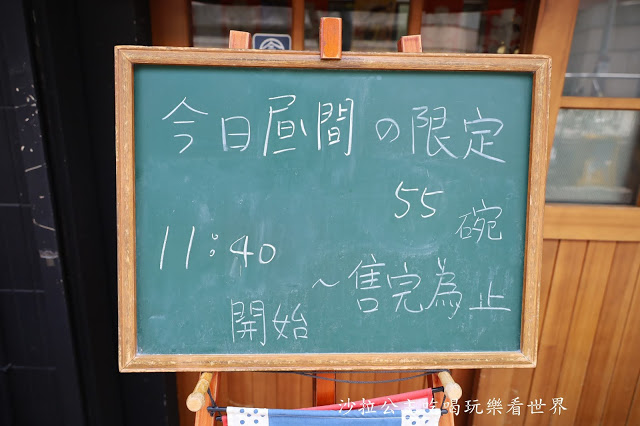 今日昼間の限定
55碗
11:40
開始
~售完為止
沙拉公主吃喝玩樂看世界